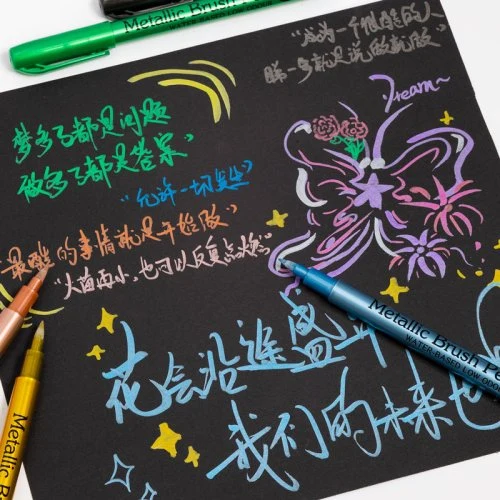 Metallic Brush Pen
"成为一个很酷的人
第一步就是说做就做"
Dream~
梦多了都是问题
做多了都是答案
"允许一切发生"
"最酷的事情就是开始做"
"火苗再小，也可以反复点燃"
花会沿途盛开
我们的未来也
Metallic Brush Pe
WATER-BASED LOW-O
Metallic B